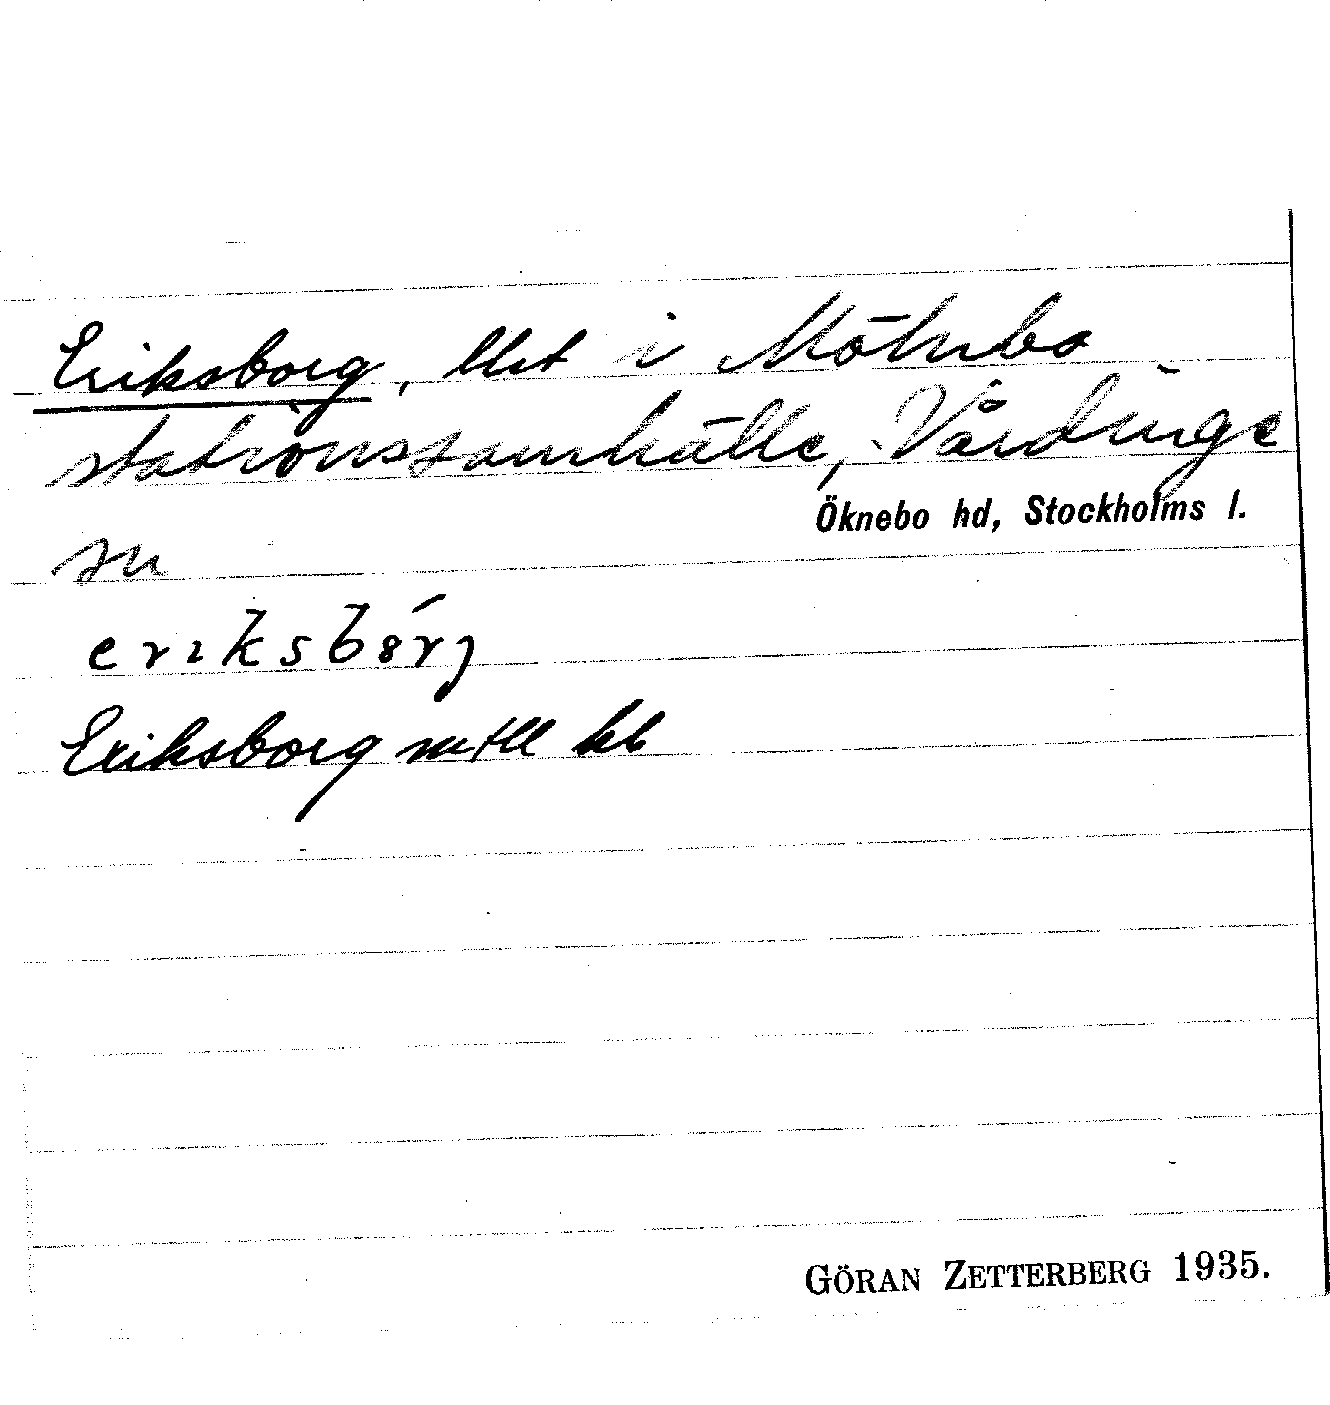 Eriksborg, lht i Mölnbo
stationssamhälle, Vårdinge
Öknebo hd, Stockholms l.
sn
Eriksborg mtll kb
GÖRAN ZETTERBERG 1935.